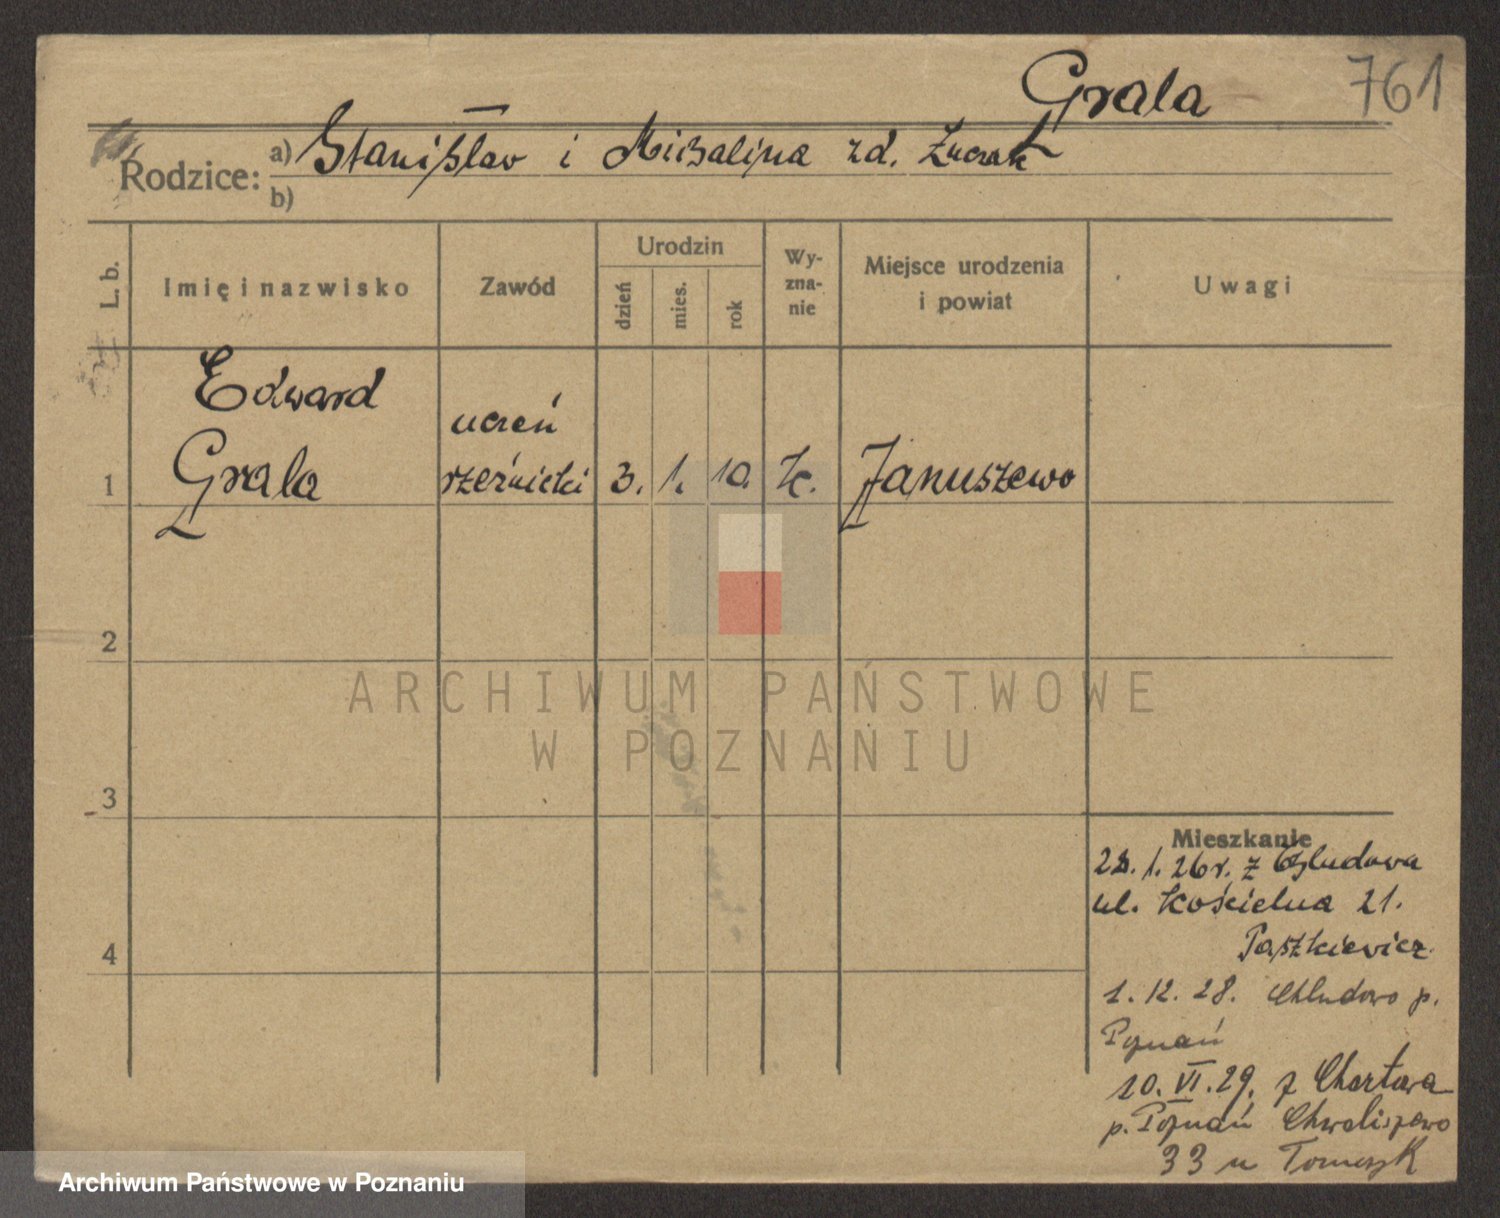 Grala 761
Rodzice: a) Stanisław i Michalina zd. Żuczak
b)
L. b.
Imię i nazwisko
Zawód
Urodzin
dzień
mies.
rok
Wy-
zna-
nie
Miejsce urodzenia
i powiat
Uwagi
Edward
uczeń
1 Grala rzeźnicki 3. 1. 10. k. Januszewo
2
3
4
Mieszkanie
28. 1. 26 r. z Chludowa
ul. Kościelna 21.
Paszkiewicz
1. 12. 28. Chludowo p.
Poznań
10. VI. 29. z Chartowa
p. Poznań Chwaliszewo
33 u Tomczyk
ARCHIWUM PAŃSTWOWE
W POZNANIU
Archiwum Państwowe w Poznaniu